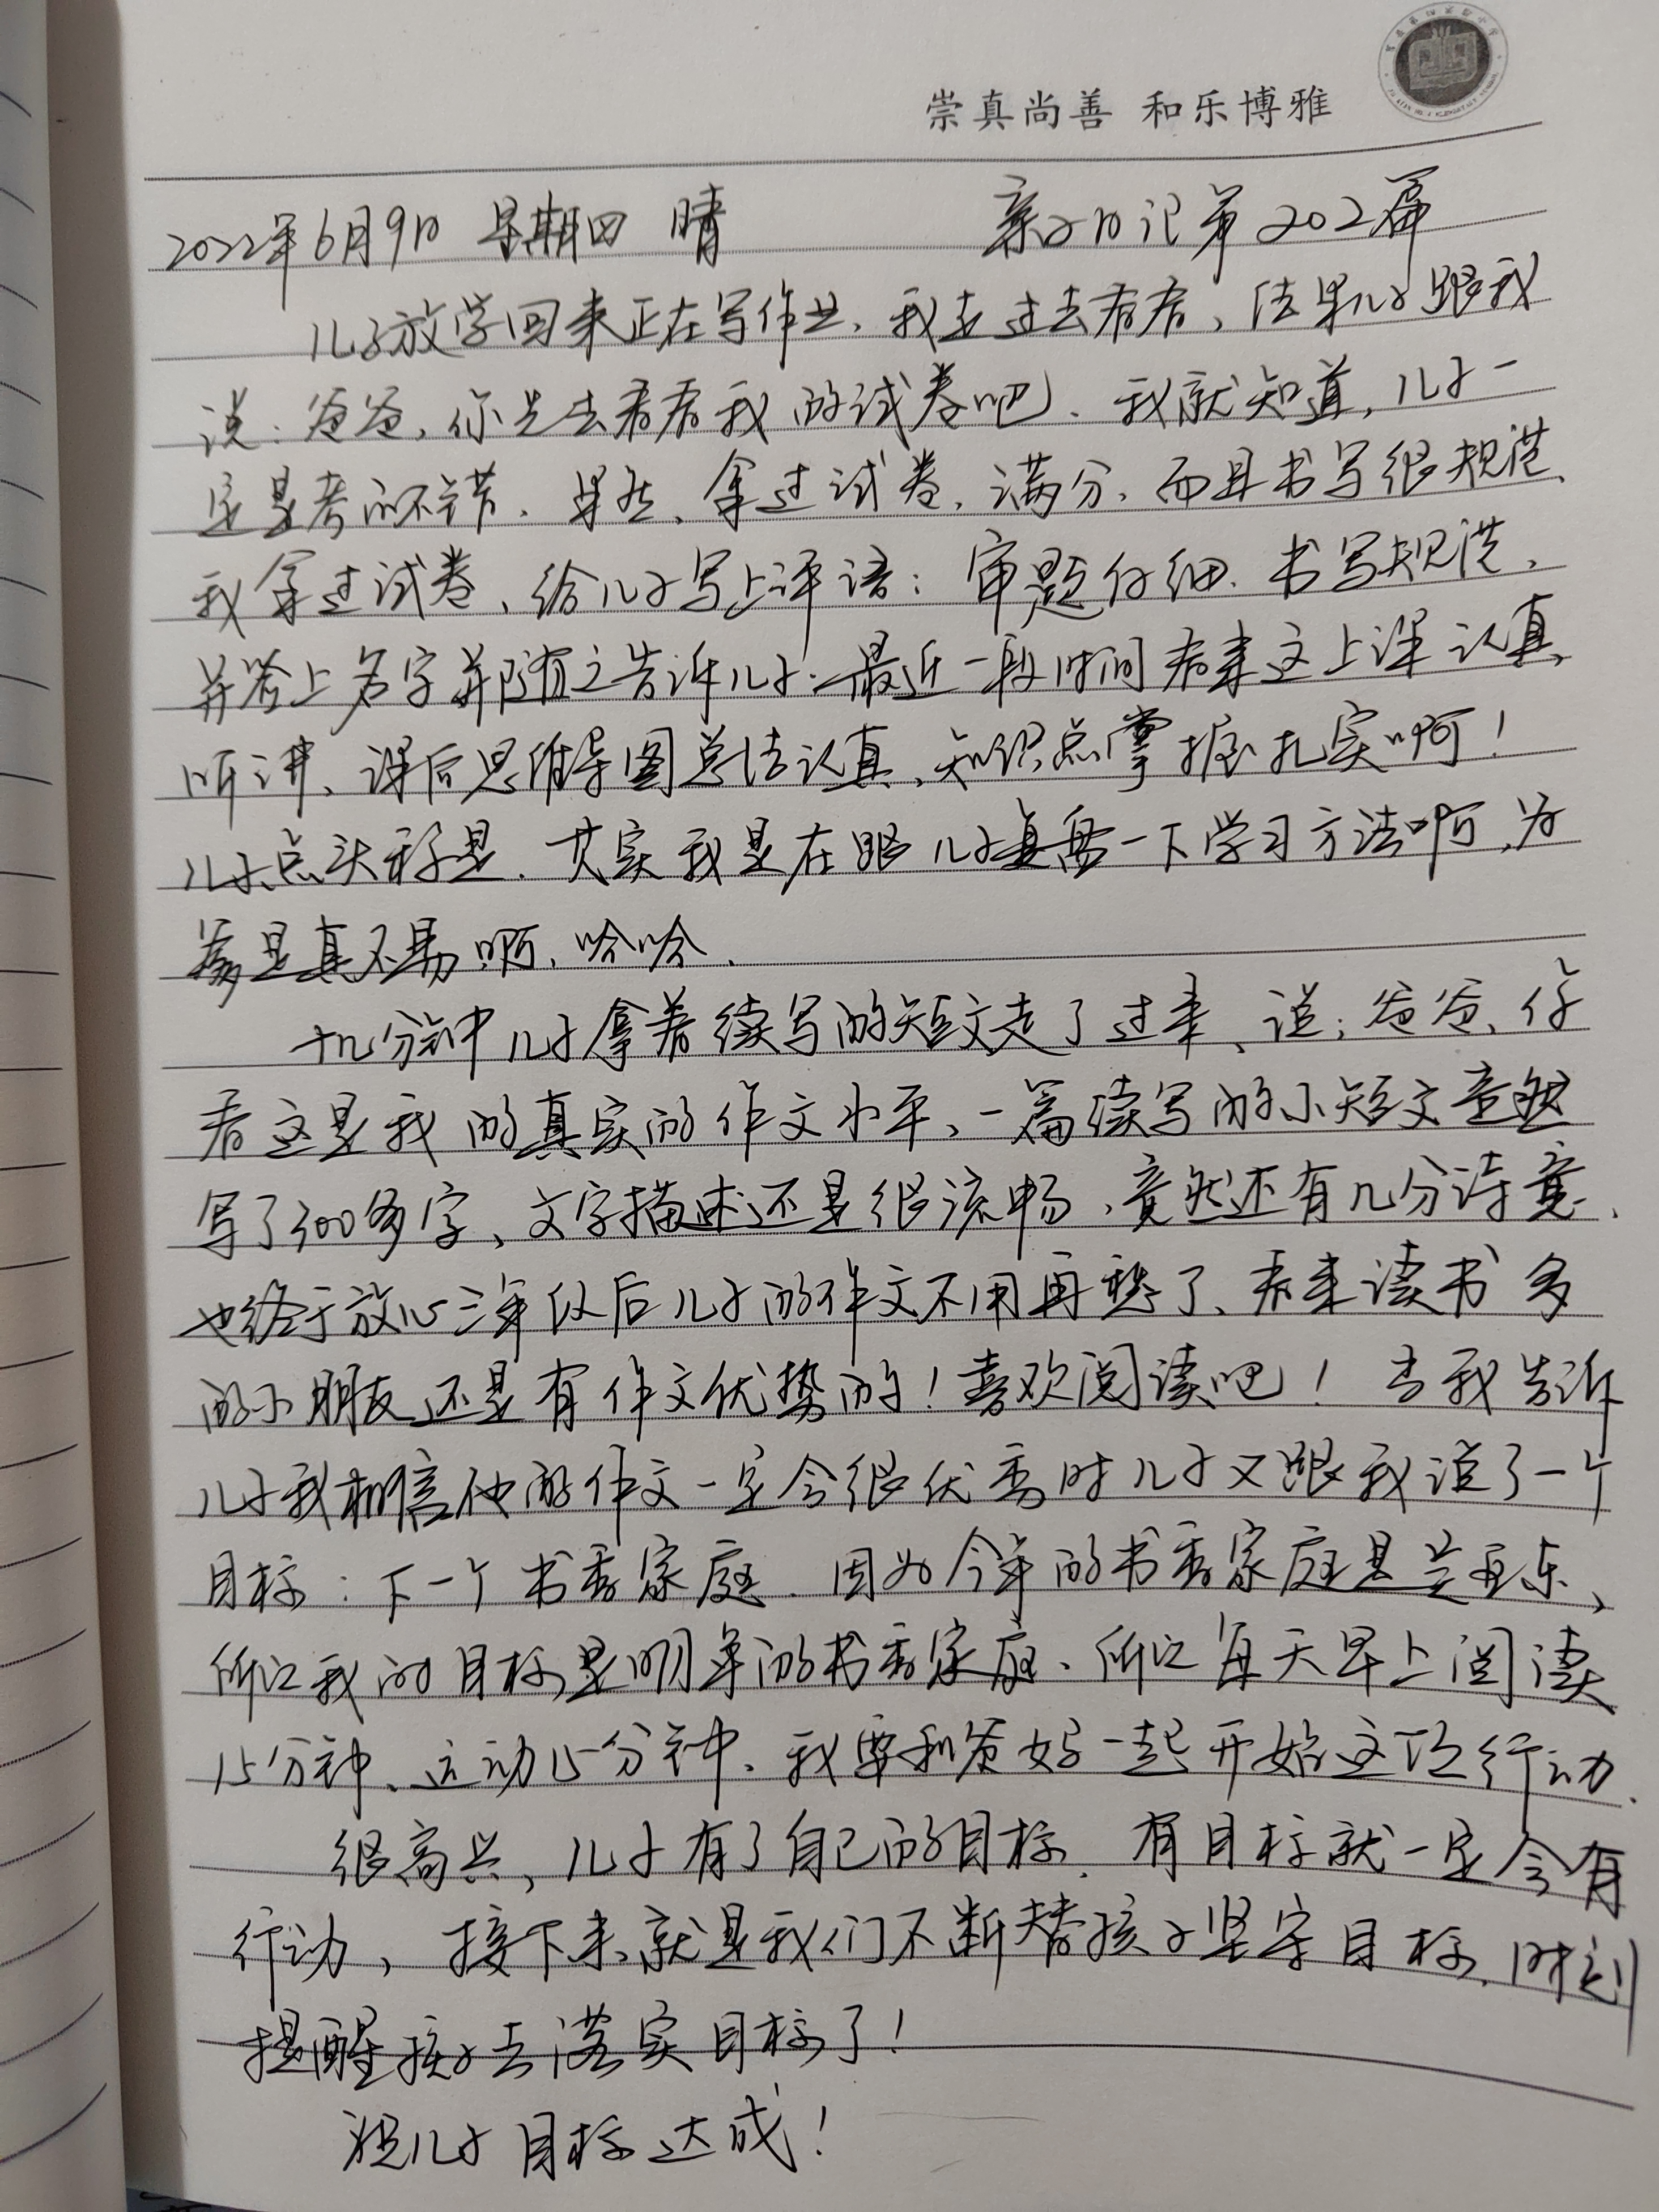 崇真尚善 和乐博雅
2022年6月9日 星期四 晴 亲子日记第202篇
儿子放学回来正在写作业，我走过去看看，结果儿子跟我
说：爸爸，你先去看看我的试卷吧。我就知道，儿子一
定是考的不错。果然，拿过试卷，满分，而且书写很规范、
我拿过试卷、给儿子写上评语：审题仔细、书写规范，
并签上名字并随之告诉儿子：最近一段时间看来这上课认真
听讲、课后思维导图总结认真、知识点掌握扎实啊！
儿子点头称是。其实我是在跟儿子复盘一下学习方法啊，为
爹是真不易啊、哈哈。
十几分钟儿子拿着续写的短文走了过来、说：爸爸、你
看这是我的真实的作文水平、一篇续写的小短文竟然
写了300多字、文字描述还是很流畅，竟然还有几分诗意、
也终于放心三年级后儿子的作文不用再愁了、看来读书多
的小朋友还是有作文优势的！喜欢阅读吧！当我告诉
儿子我相信他的作文一定会很优秀时儿子又跟我说了一个
目标：下一个书香家庭。因为今年的书香家庭是兰亚东、
所以我的目标是明年的书香家庭、所以每天早上阅读
15分钟、运动15分钟、我要和爸妈一起开始这项行动.
很高兴，儿子有了自己的目标。有目标就一定会有
行动，接下来就是我们不断替孩子坚定目标、时刻
提醒孩子去落实目标了！
祝儿子目标达成！